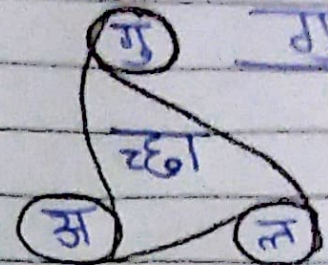 गु
च्छा
अ ल